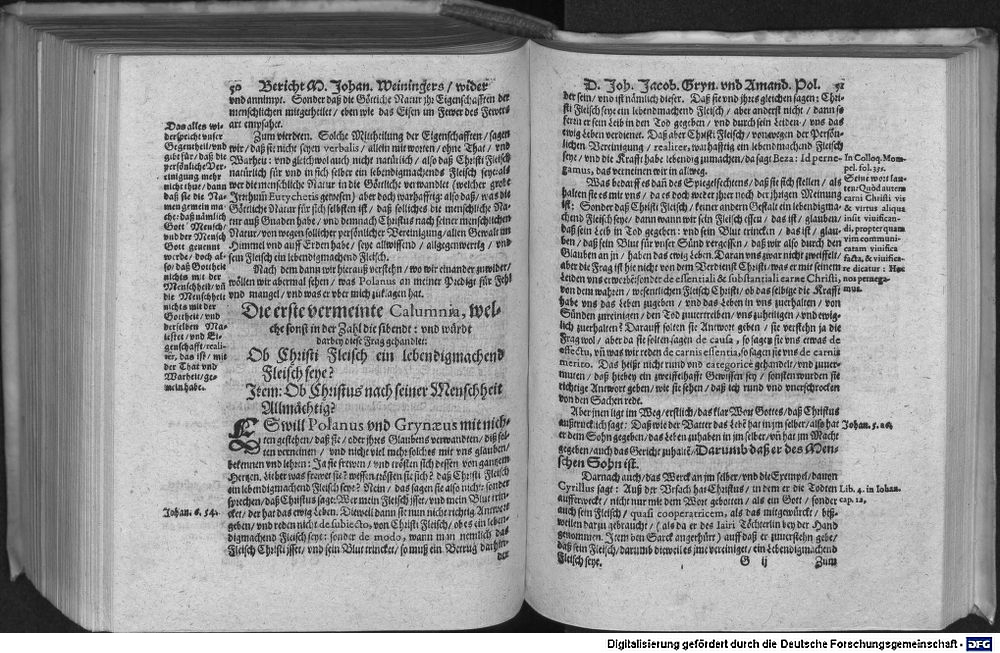 50 Bericht M. Johan. Weiningers / wider
vnd annimpt. Sonder daß die Göttliche Natur jhr Eigenschafften der
menschlichen mitgetheilet / eben wie das Eisen im Fewer des Fewers
art empfahet.
Zum vierdten. Solche Mittheilung der Eigenschafften / sagen
wir / daß sie nicht seyen verbalis / allein mit worten / ohne That / vnd
Warheit: vnd gleichwol auch nicht natürlich / also daß Christi Fleisch
natürlich für vnd in sich selber ein lebendigmachends Fleisch seye: als
wer die menschliche Natur in die Göttliche verwandlet (welcher grobe
Irrthum Eutychetis gewesen) aber doch warhafftig: also daß / was die
Göttliche Natur für sich selbsten ist / daß solliches die menschliche Na-
tur auß Gnaden habe / vnd demnach Christus nach seiner menschlichen
Natur / von wegen sollicher persönlicher Vereinigung / allen Gewalt im
Himmel vnd auff Erden habe / seye allwissend / allgegenwertig / vnd
sein Fleisch ein lebendigmachends Fleisch.
Nach dem dann wir hierauß verstehn / wo wir einander zuwider /
wöllen wir abermal sehen / was Polanus an meiner Predigt für Fehl
vnd mangel / vnd was er vber mich zuklagen hat.
Die erste vermeinte Calumnia, wel-
che sonst in der Zahl die sibendt: vnd würdt
darbey diese Frag gehandlet:
Ob Christi Fleisch ein lebendigmachend
Fleisch seye?
Item: Ob Christus nach seiner Menschheit
Allmächtig?
ES will Polanus vnd Grynæus mit nich-
ten gestehen / daß sie / oder jhres Glaubens verwandten / diß sol-
ten verneinen / vnd nicht viel mehr solches mit vns glauben /
bekennen vnd lehren: Ja sie frewen / vnd trösten sich dessen von gantzem
Hertzen. Lieber was frewet sie? wessen trösten sie sich? daß Christi Fleisch
ein lebendigmachend Fleisch seye? Nein / das sagen sie also nicht: sonder
sprechen / daß Christus sage: Wer mein Fleisch isset / vnd mein Blut trin-
cket / der hat das ewig Leben. Dieweil dann sie nun nicht richtig Antwort
geben / vnd reden nicht de subiecto, von Christi Fleisch / ob es ein leben-
digmachend Fleisch seye: sonder de modo, wann man nemlich das
Fleisch Christi isset / vnd sein Blut trincket / so muß ein Betrug darhin-
der
Das alles wi-
derspricht vnser
Gegentheil / vnd
gibt für / daß die
persönliche Ver-
einigung mehr
nicht thue / dann
daß sie die Na-
men gemein ma-
che: daß nämlich
Gott Mensch /
vnd der Mensch
Gott genennt
werde / doch al-
so / daß Gottheit
nichts mit der
Menschheit / vñ
die Menschheit
nichts mit der
Gottheit / vnd
derselben Ma-
iestet / vnd Ei-
genschafft / reali-
ter, das ist / mit
der That vnd
Warheit / ge-
mein habe.
Johan. 6. 54.
D. Joh. Jacob. Gryn. vnd Amand. Pol. 51
der sein / vnd ist nämlich dieser. Daß sie vnd jhres gleichen sagen: Chri-
sti Fleisch seye ein lebendmachend Fleisch / aber anderst nicht / dann so
fern er sein Leib in den Tod gegeben / vnd durch sein Leiden / vns das
ewig Leben verdienet. Daß aber Christi Fleisch / von wegen der Persön-
lichen Vereinigung / realiter, warhafftig ein lebendmachend Fleisch
seye / vnd die Krafft habe lebendig zumachen / da sagt Beza: Id perne-
gamus, das verneinen wir in allweg.
Was bedarff es dañ des Spiegelfechtens / daß sie sich stellen / als
halten sie es mit vns / da es doch weder jhrer noch der jhrigen Meinung
ist: Sonder daß Christi Fleisch / keiner andern Gestalt ein lebendigma-
chend Fleisch seye / dann wann wir sein Fleisch essen / das ist / glauben /
daß sein Leib in Tod gegeben: vnd sein Blut trincken / das ist / glau-
ben / daß sein Blut für vnser Sünd vergossen / daß wir also durch den
Glauben an jn / haben das ewig Leben. Daran vns zwar nicht zweiffelt /
aber die Frag ist hie nicht von dem Verdienst Christi / was er mit seinem
Leiden vns erworben: sonder de essentiali & substantiali carne Christi,
von dem wahren / wesentlichen Fleisch Christi / ob das selbige die Krafft
habe vns das Leben zugeben / vnd das Leben in vns zuerhalten / von
Sünden zureinigen / den Tod zuuertreiben / vns zuheiligen / vnd ewig-
lich zuerhalten? Darauff solten sie Antwort geben / sie verstehn ja die
Frag wol / aber da sie solten sagen de causa, so sagen sie vns etwas de
effectu, vñ was wir reden de carnis essentia, so sagen sie vns de carnis
merito. Das heißt nicht rund vnd categoricè gehandelt / vnd zuuer-
muten / daß hiebey ein zweiffelhafft Gewissen sey / sonsten wurden sie
richtige Antwort geben / wie sie sehen / daß ich rund vnd vnerschrocken
von den Sachen rede.
Aber jnen ligt im Weg / erstlich / das klar Wort Gottes / daß Christus
außtrucklich sagt: Daß wie der Vatter das Lebē hat in jm selber / also hat
er dem Sohn gegeben / das Leben zuhaben in jm selber / vñ hat jm Macht
gegeben / auch das Gericht zuhaltē / Darumb daß er des Men-
schen Sohn ist.
Darnach auch / das Werck an jm selber / vnd die Exempel / dauon
Cyrillus sagt: Auß der Vrsach hat Christus / in dem er die Todten
aufferweckt / nicht nur mit dem Wort gebotten / als ein Gott / sonder
auch sein Fleisch / quasi cooperatricem, als das mitgewürckt / biß-
weilen darzu gebraucht / (als da er des Iairi Töchterlin bey der Hand
genommen. Item den Sarck angerhürt) auff daß er zuuerstehn gebe /
daß sein Fleisch / darumb dieweil es jme vereiniget / ein Lebendigmachend
Fleisch seye.
G ij Zum
In Colloq. Mom-
pel. fol. 335.
Seine wort lau-
ten: Quòd autem
carni Christi vis
& virtus aliqua
insit viuifican-
di, propter quam
vim communi-
catam viuifica
facta, & viuifica-
re dicatur: Hoc
nos pernega-
mus.
Johan. 5. 26.
Lib. 4. in Iohan.
cap. 12.
Digitalisierung gefördert durch die Deutsche Forschungsgemeinschaft - DFG